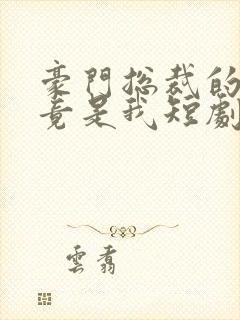 豪門總裁的
竟是我短劇
雲翥